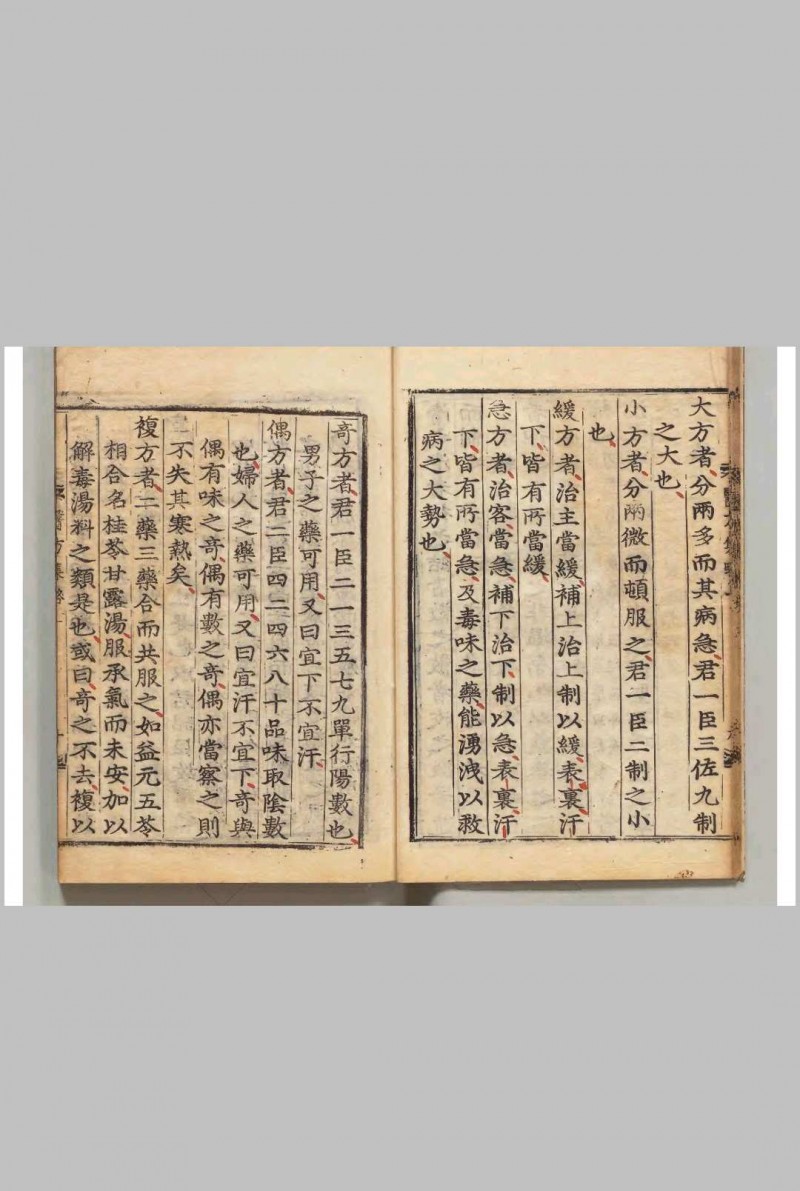 大方者分兩多而其病急君一臣三佐九制
之大也
小方者分兩微而頓服之君一臣二制之小
也
緩方者治主當緩補上治上制以緩表裏汗
下皆有所當緩
急方者治客當急補下治下制以急表裏汗
下皆有所當急及毒味之藥能湧洩以救
病之大勢也
奇方者君一臣二一三五七九單行陽數也
男子之藥可用又曰宜下不宜汗
偶方者君二臣四二四六八十品味取陰數
也婦人之藥可用又曰宜汗不宜下奇與
偶有味之奇偶有數之奇偶亦當察之則
不失其寒熱矣
複方者二藥三藥合而共服之如益元五苓
相合名桂苓甘露湯服承氣而未安加以
解毒湯料之類是也或曰奇之不去複以